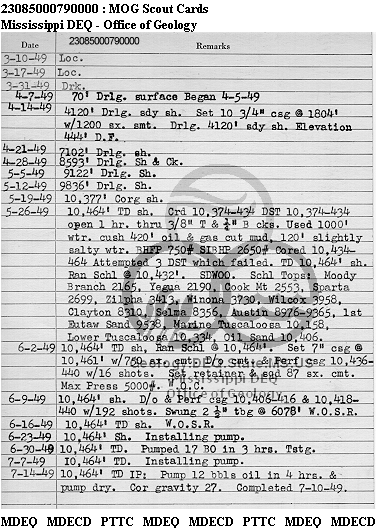 23085000790000 : MOG Scout Cards
Mississippi DEQ - Office of Geology
Date 23085000790000 Remarks
3-10-49 Loc.
3-17-49 Loc.
3-31-49 Drk.
4-7-49 70' Drlg. surface Began 4-5-49
4-14-49 4120' Drlg. sdy sh. Set 10 3/4" csg @ 1804'
w/1200 sx. smt. Drlg. 4120' sdy sh. Elevation
444' D.F.
4-21-49 7102' Drlg. sh.
4-28-49 8593' Drlg. Sh & Ck.
5-5-49 9122' Drlg. Sh.
5-12-49 9836' Drlg. Sh.
5-19-49 10,377' Corg sh.
5-26-49 10,464' TD sh. Crd 10,374-434 DST 10,374-434
open 1 hr. thru 3/8" T & ¼" B cks. Used 1000'
wtr. cush 420' oil & gas cut mud, 120' slightly
salty wtr. BHFP 750# SIBHP 2650# Cored 10,434-
464 Attempted 3 DST which failed. TD 10,464' sh.
Ran Schl @ 10,432'. SDWOO. Schl Tops: Moody
Branch 2165, Yegua 2190, Cook Mt 2553, Sparta
2699, Zilpha 3413, Winona 3730, Wilcox 3958,
Clayton 8310, Selma 8356, Austin 8976-9365, 1st
Eutaw Sand 9536, Marine Tuscaloosa 10,158,
Lower Tuscaloosa 10,334, Oil Sd 10,406.
6-2-49 10,464' TD sh. Ran Schl @ 10,464'. Set 7" csg @
10,461 w/750 sx. cmt. D/o cmt & Perf csg 10,436-
440 w/16 shots. Set retainer & sqd 87 sx. cmt.
Max Press 5000#. W.O.C.
6-9-49 10,464' sh. D/o & Perf csg 10,408-416 & 10,418-
440 w/192 shots. Swung 2 ½" tbg @ 6078' W.O.S.R.
6-16-49 10,464' TD sh. W.O.S.R.
6-23-49 10,464' Sh. Installing pump.
6-30-49 10,464' TD. Pumped 17 BO in 3 hrs. Tstg.
7-7-49 10,464' TD. Installing pump.
7-14-49 10,464' TD IP: Pump 12 bbls oil in 4 hrs. &
pump dry. Cor gravity 27. Completed 7-10-49.
MDEQ MDECD PTTC MDEQ MDECD PTTC MDEQ MDECD